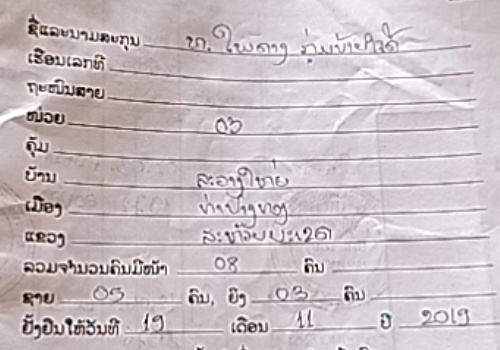 ຊື່ແລະນາມສະກຸນ ທ.
ເຮືອນເລກທີ
ຖະໜົນສາຍ
ໜ່ວຍ 03
ຄຸ້ມ
ບ້ານ ສະອາງໃຫຍ່
ເມືອງ ທ່າປາງທອງ
ແຂວງ ສະຫວັນນະເຂດ
ລວມຈຳນວນຄົນມີໜ້າ 08 ຄົນ
ຊາຍ 05 ຄົນ, ຍິງ 03 ຄົນ
ຍັ້ງຢືນໃຫ້ວັນທີ 19 ເດືອນ 11 ປີ 2019